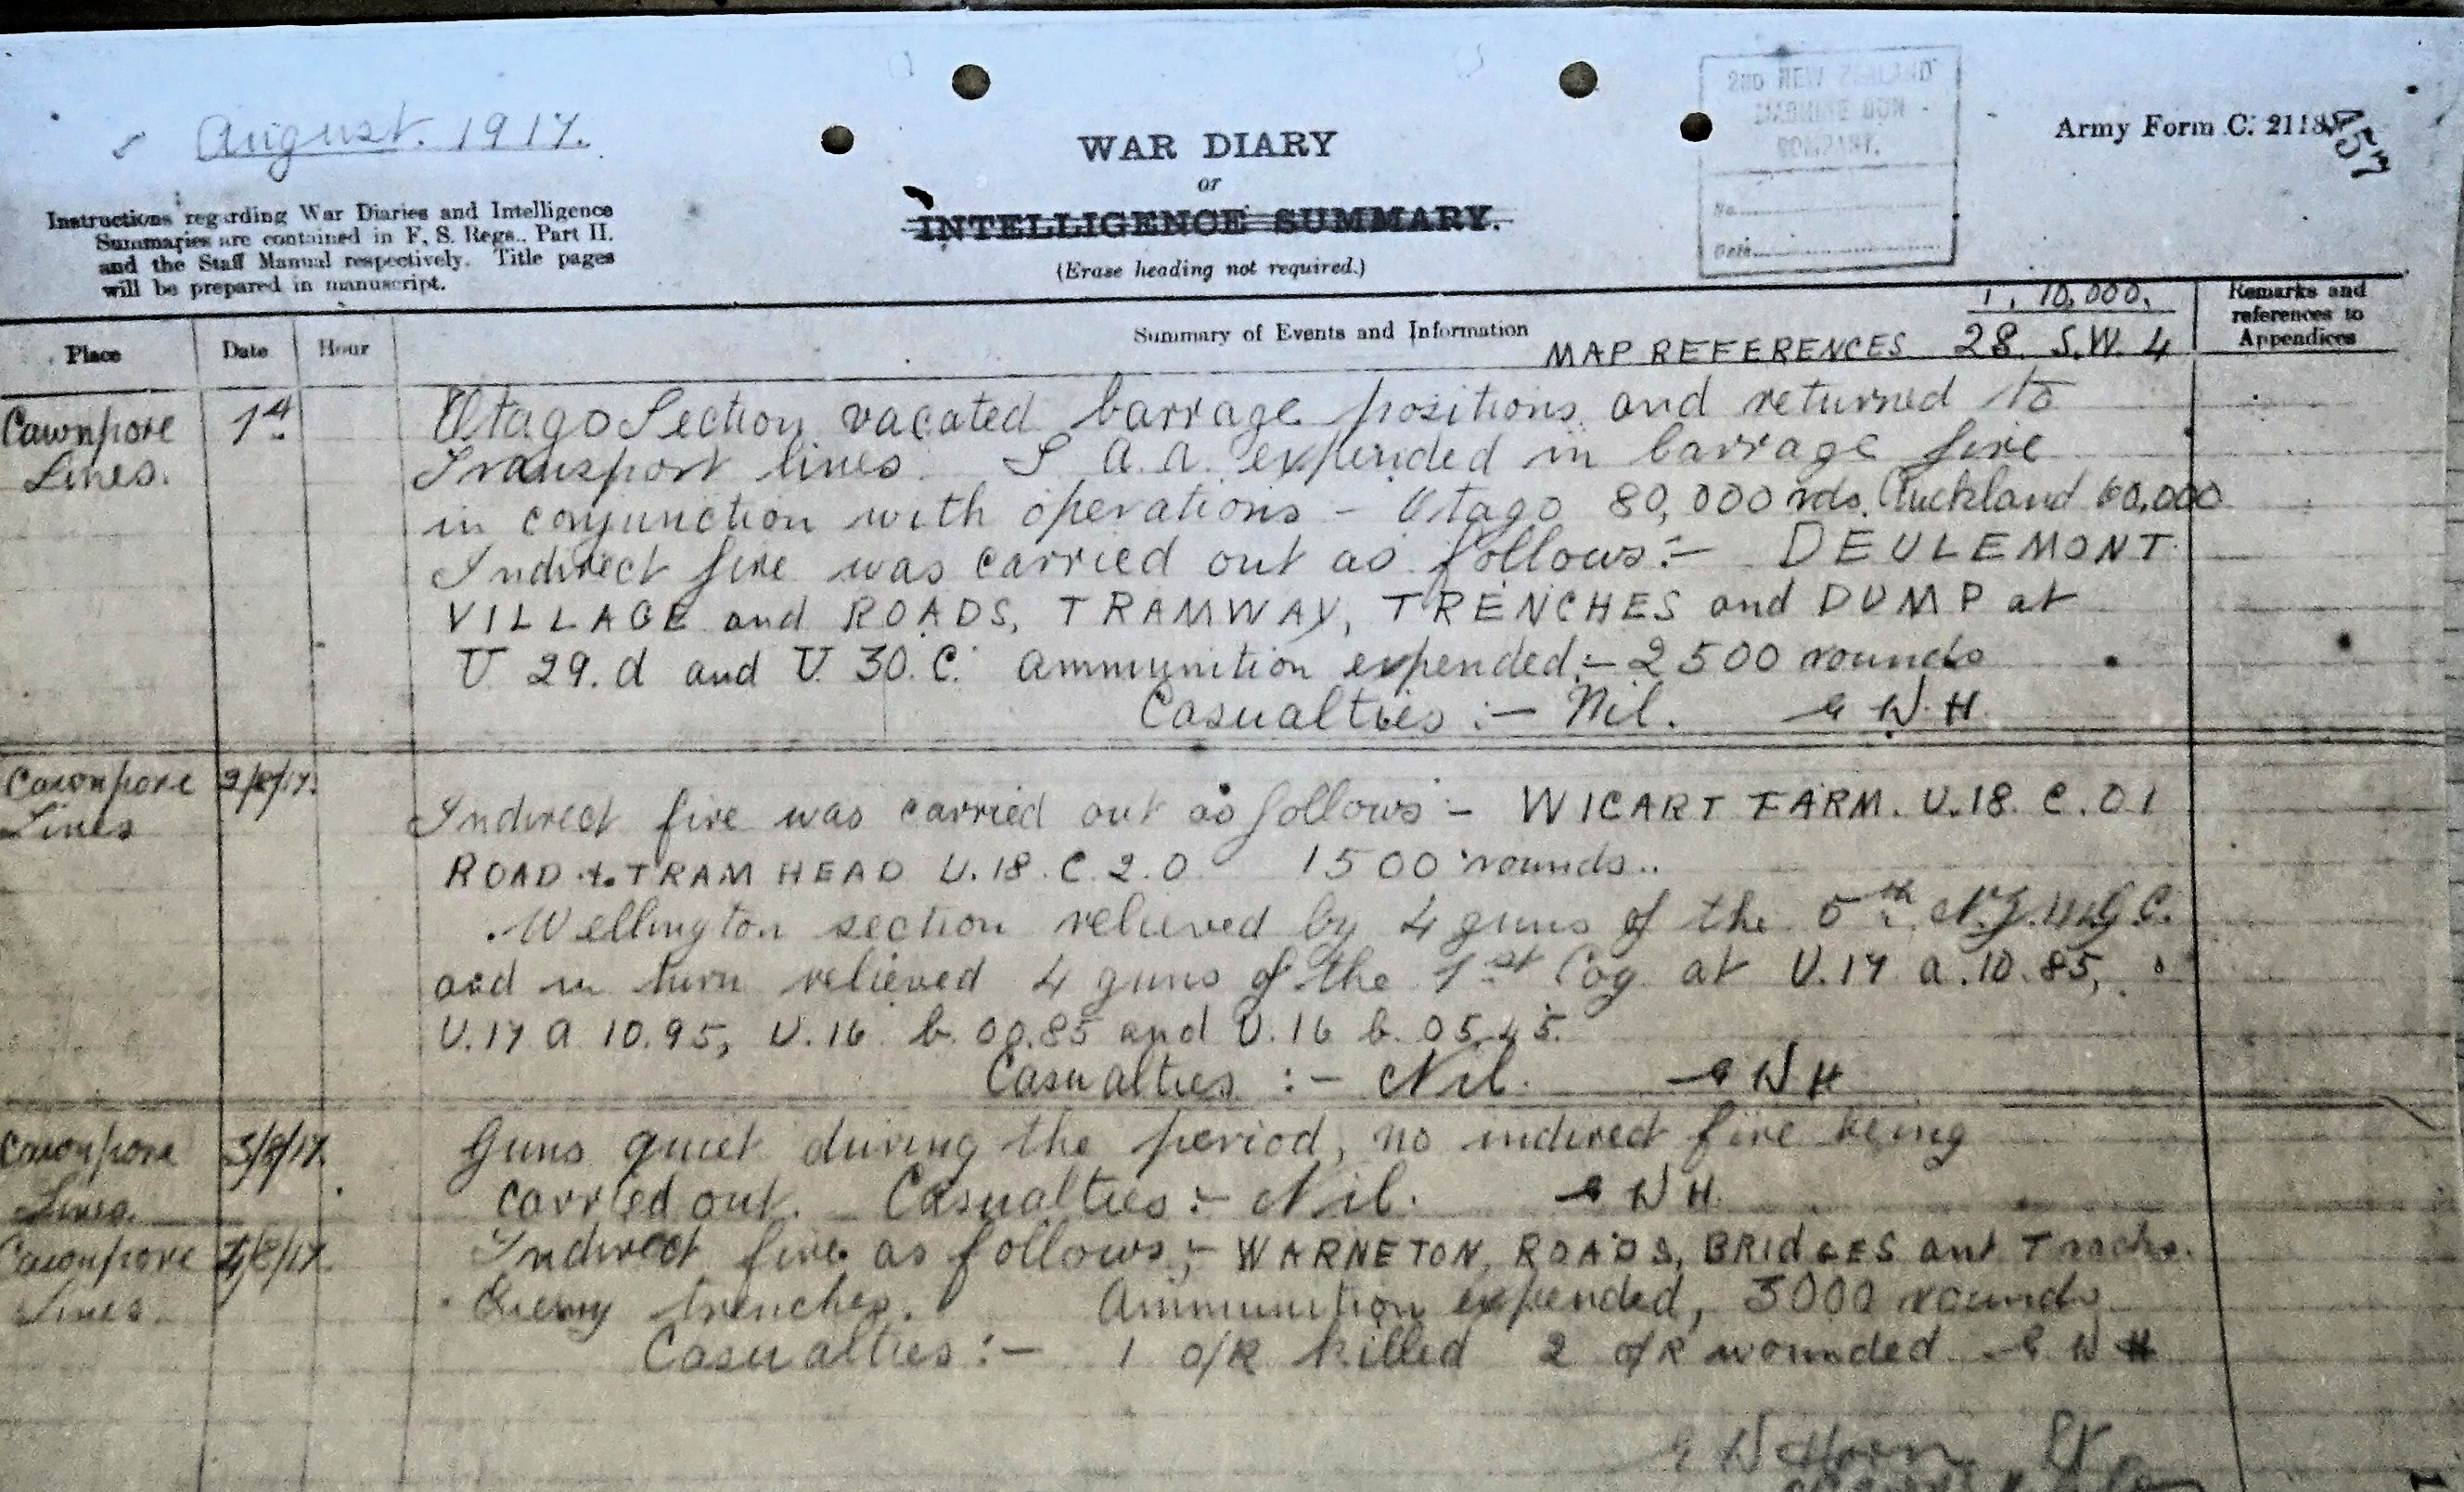 August. 1917.
2ND NEW ZEALAND
MACHINE GUN
COMPANY.
No.
Date
Army Form C. 2118
WAR DIARY
or
INTELLIGENCE SUMMARY.
(Erase heading not required.)
Instructions regarding War Diaries and Intelligence
Summaries are contained in F. S. Regs., Part II.
and the Staff Manual respectively. Title pages
will be prepared in manuscript.
Place
Date
Hour
Summary of Events and Information
1, 10,000,
MAP REFERENCES 28 S.W. 4
Remarks and
references to
Appendices
Cawnpore
Lines.
1st
Otago Section vacated barrage positions and returned to
Transport lines. S A.A. expended in barrage fire
in conjunction with operations - Otago 80,000 rds. Auckland 60,000
Indirect fire was carried out as follows:- DEULEMONT
VILLAGE and ROADS, TRAMWAY, TRENCHES and DUMP at
U 29.d and U 30. C. Ammunition expended:- 2500 rounds
Casualties :- Nil. E W. H.
Cawnpore
Lines
2/8/17.
Indirect fire was carried out as follows - WICART FARM. U.18. C. 0 1
ROAD & TRAM HEAD U.18. C. 2.0 1500 rounds..
Wellington section relieved by 4 guns of the 5th N.Z.M.G.C.
and in turn relieved 4 guns of the 1st Coy at U.17 a.10.85,
U.17 a 10.95, U.16 b. 00.85 and U.16 b. 05.45.
Casualties :- Nil. E W H
Cawnpore
Lines.
3/8/17.
Guns quiet during the period, no indirect fire being
carried out. Casualties :- Nil. E W H.
Cawnpore
Lines.
4/8/17.
Indirect fire as follows:- WARNETON, ROADS, BRIdGES and Tracks.
Enemy trenches. Ammunition expended, 3000 rounds
Casualties :- 1 O/R killed 2 O/R wounded E W H
E W Horn Lt.